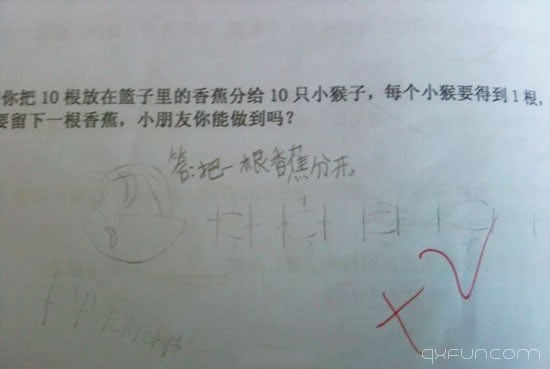 你把 10 根放在篮子里的香蕉分给 10 只小猴子，每个小猴要得到 1 根，
要留下一根香蕉，小朋友你能做到吗？
答:把一根香蕉分开。
qxfuncom